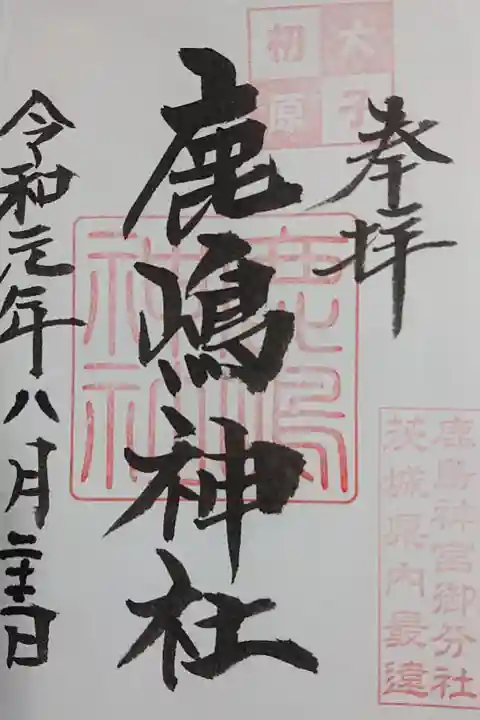 大子
初原
奉拝
鹿島神宮御分社
茨城県内最遠
鹿嶋神社
鹿嶋
神社
令和元年八月二十二日